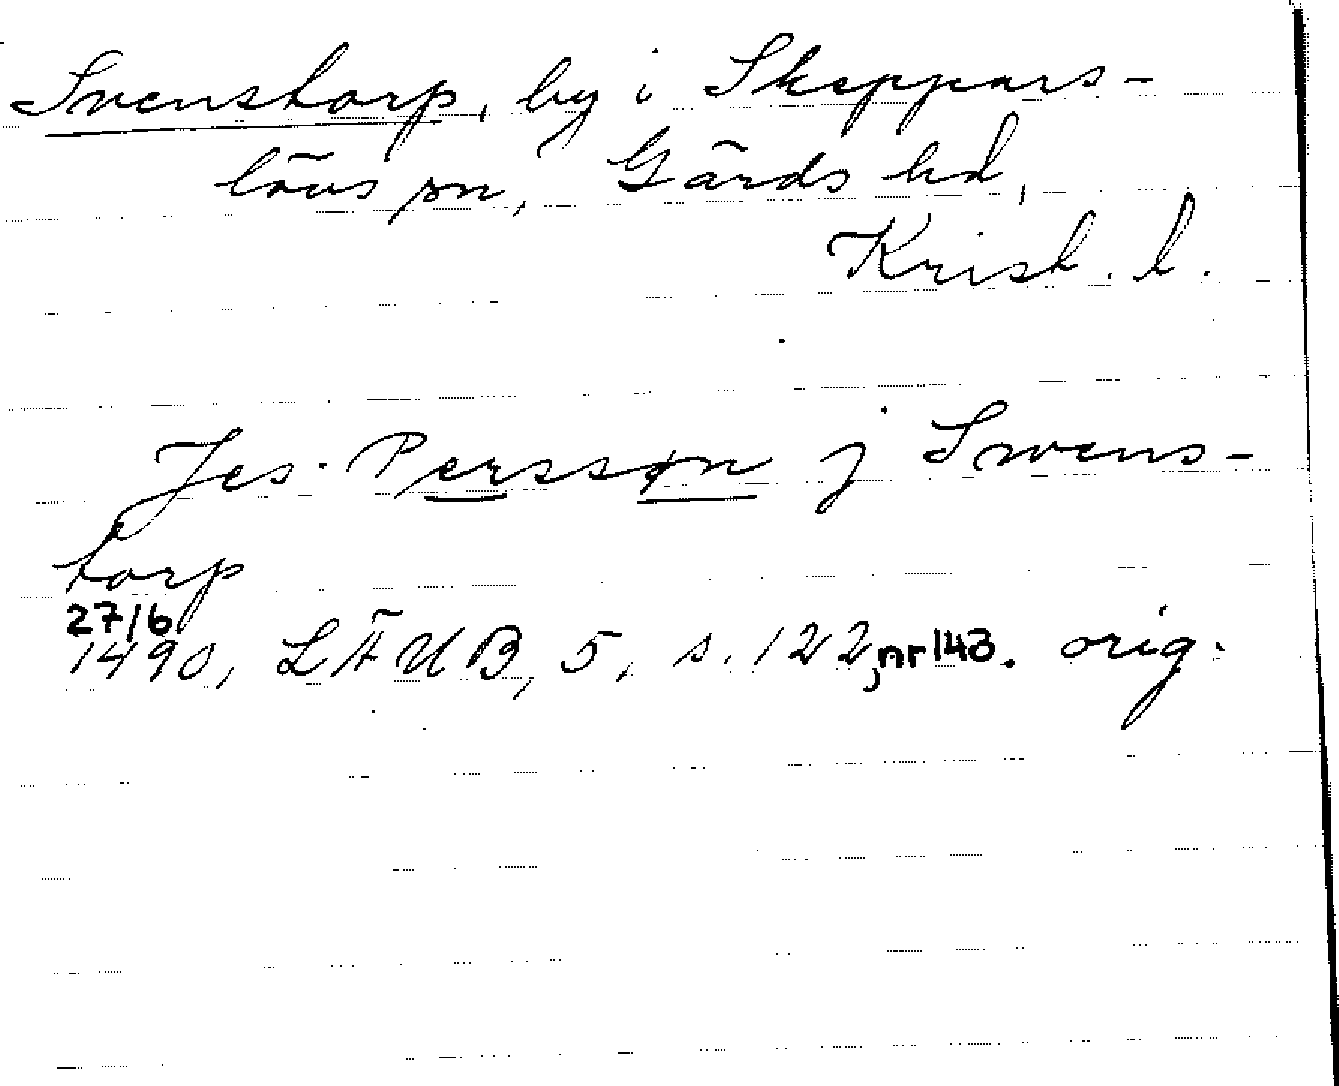 Svenstorp, by i Skeppars-
lövs sn, Gärds hd,
Krist. l.
Jes Perssøn j Swens-
torp
27/6
1490, LÄUB, 5, s. 122, nr 143. orig.